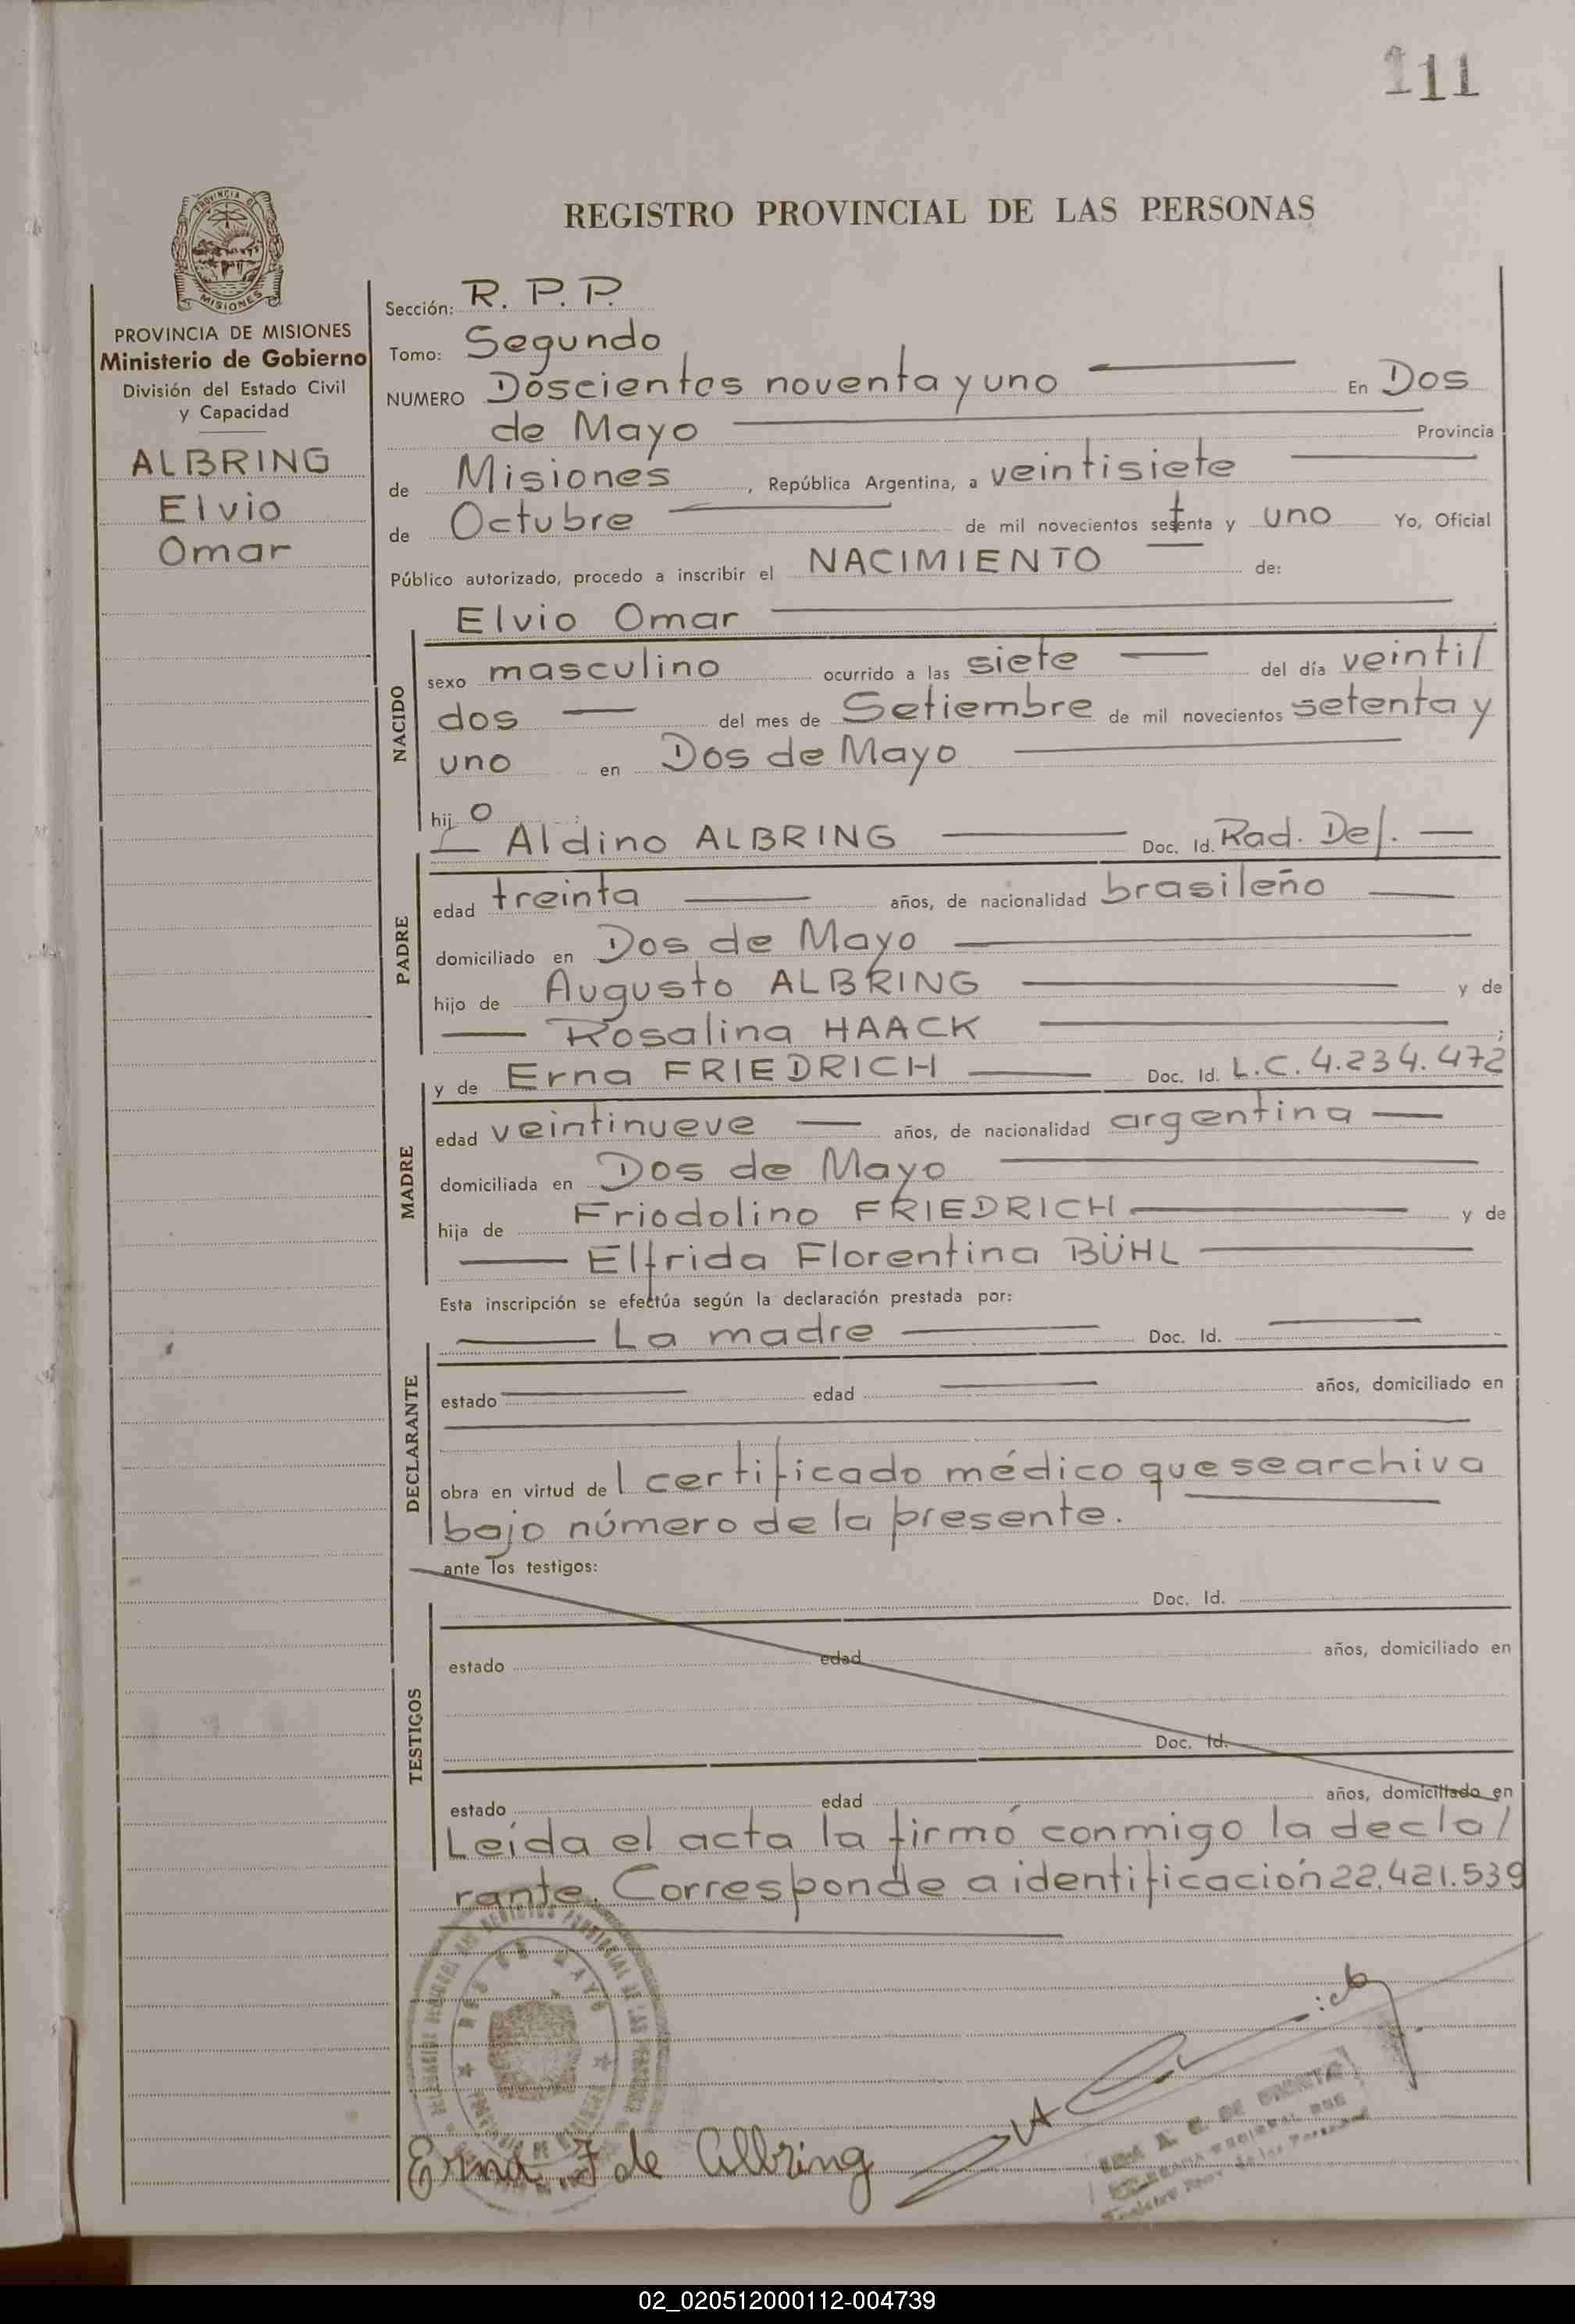 111
REGISTRO PROVINCIAL DE LAS PERSONAS
PROVINCIA DE
MISIONES
PROVINCIA DE MISIONES
Ministerio de Gobierno
División del Estado Civil
y Capacidad
ALBRING
Elvio
Omar
Sección: R. P. P.
Tomo: Segundo
NUMERO Doscientos noventa y uno En Dos
de Mayo Provincia
de Misiones, República Argentina, a veintisiete
de Octubre de mil novecientos setenta y uno Yo, Oficial
Público autorizado, procedo a inscribir el NACIMIENTO de:
Elvio Omar
NACIDO
sexo masculino ocurrido a las siete del día veinti/
dos del mes de Setiembre de mil novecientos setenta y
uno en Dos de Mayo
hijo
PADRE
Aldino ALBRING Doc. Id. Rad. Def.
edad treinta años, de nacionalidad brasileño
domiciliado en Dos de Mayo
hijo de Augusto ALBRING y de
Rosalina HAACK ;
MADRE
y de Erna FRIEDRICH Doc. Id. L.C. 4.234.472
edad veintinueve años, de nacionalidad argentina
domiciliada en Dos de Mayo
hija de Friodolino FRIEDRICH y de
Elfrida Florentina BÜHL
Esta inscripción se efectúa según la declaración prestada por:
DECLARANTE
La madre Doc. Id.
estado edad años, domiciliado en
obra en virtud del certificado médico que se archiva
bajo número de la presente.
ante los testigos:
TESTIGOS
Doc. Id.
estado edad años, domiciliado en
Doc. Id.
estado edad años, domiciliado en
Leída el acta la firmó conmigo la decla/
rante. Corresponde a identificación 22.421.539
Erna F de Albring
02_020512000112-004739